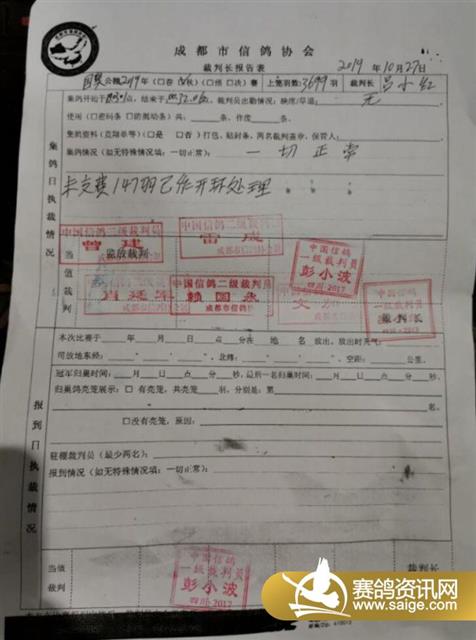 成都市信鸽协会
裁判长报告表 2019年10月27日
公棚2019年(□春 □秋)(□ □决)赛 上笼羽数:3699羽 裁判长 吕小红
集鸽开始于 点 分,结束于 点 分。裁判员出勤情况:缺席/早退: 无
使用(□密码条 □防揭动条)共: 条、作废: 条。
集鸽资料(克隆单等)(□是 □否)打包、贴封条、两名裁判盖章、保管人:
集鸽情况(如无特殊情况填:一切正常): 一切正常
未交费147羽已作开环处理
集鸽日执裁情况
当值裁判
监放裁判
中国信鸽二级裁判员 曾建
中国信鸽二级裁判员 雷成 成都市信鸽协会
中国信鸽一级裁判员 彭小波 四川·2017
中国信鸽二级裁判员 赖国 成都市信鸽协会
裁判长
本次比赛于 年 月 日 点 分次 地 名 放出,放出时天气:
司放地东经: 北纬: 空距: 公里。
冠军归巢时间: 月 日 点 分 秒,最后一名归巢时间: 月 日 点 分 秒。
归巢鸽亮笼展示:□ 有亮笼,共亮笼 羽,分别是:第
名。
□没有亮笼,原因:
驻棚裁判员(最少两名):
报到情况(如无特殊情况填:一切正常):
报到日执裁情况
当值裁判
中国信鸽一级裁判员 彭小波 四川·2017
裁判长
赛鸽资讯网
www.saige.com